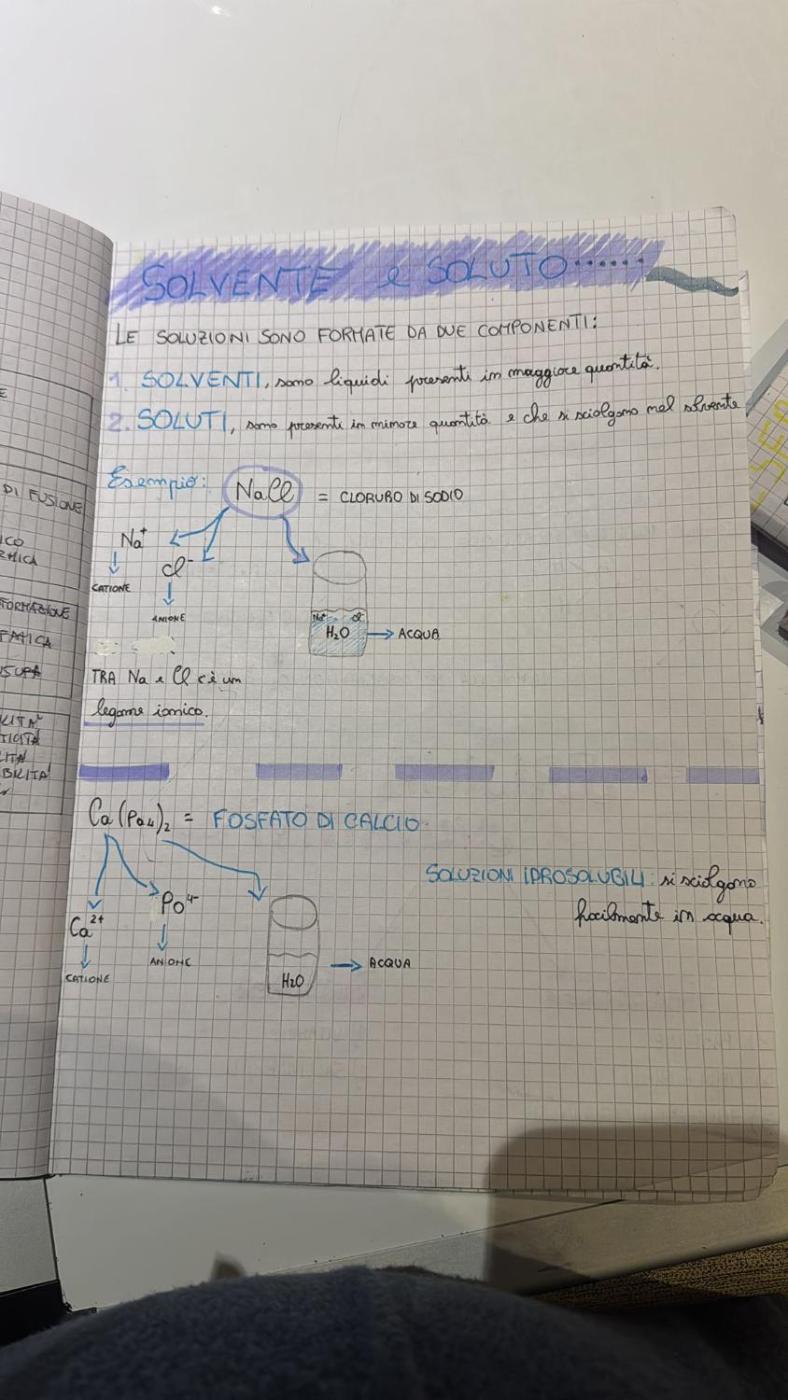 SOLVENTE e SOLUTO......
LE SOLUZIONI SONO FORMATE DA DUE COMPONENTI:
1. SOLVENTI, sono liquidi presenti in maggiore quantità.
2. SOLUTI, sono presenti in minore quantità e che si sciolgono nel solvente
Esempio: NaCl = CLORURO DI SODIO
Na+
Cl-
CATIONE
ANIONE
Na+ Cl-
H2O → ACQUA
TRA Na e Cl c'è un
legame ionico.
Ca(Po4)2 = FOSFATO DI CALCIO
SOLUZIONI IDROSOLUBILI: si sciolgono
facilmente in acqua.
Ca2+
Po4-
CATIONE
ANIONE
H2O → ACQUA
E
DI FUSIONE
ICO
FORMAZIONE